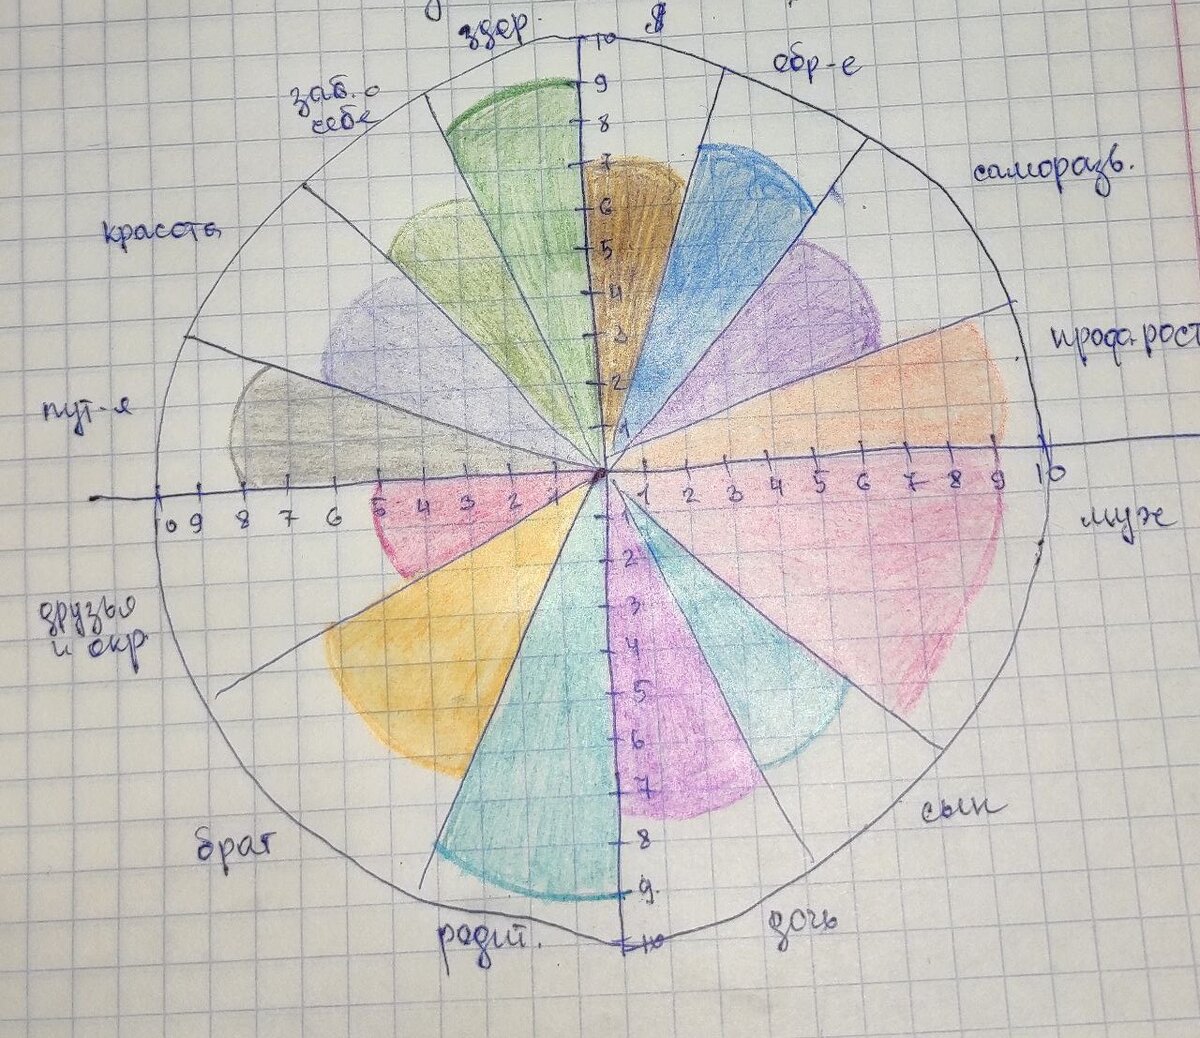 здор.
Я
обр-е
заб. о
себе
саморазв.
красота
проф. рост
пут-я
муж
друзья
и окр.
сын
брат
дочь
родит.
10
9
8
7
6
5
4
3
2
1
10 9 8 7 6 5 4 3 2 1
1 2 3 4 5 6 7 8 9 10
1
2
3
4
5
6
7
8
9
10